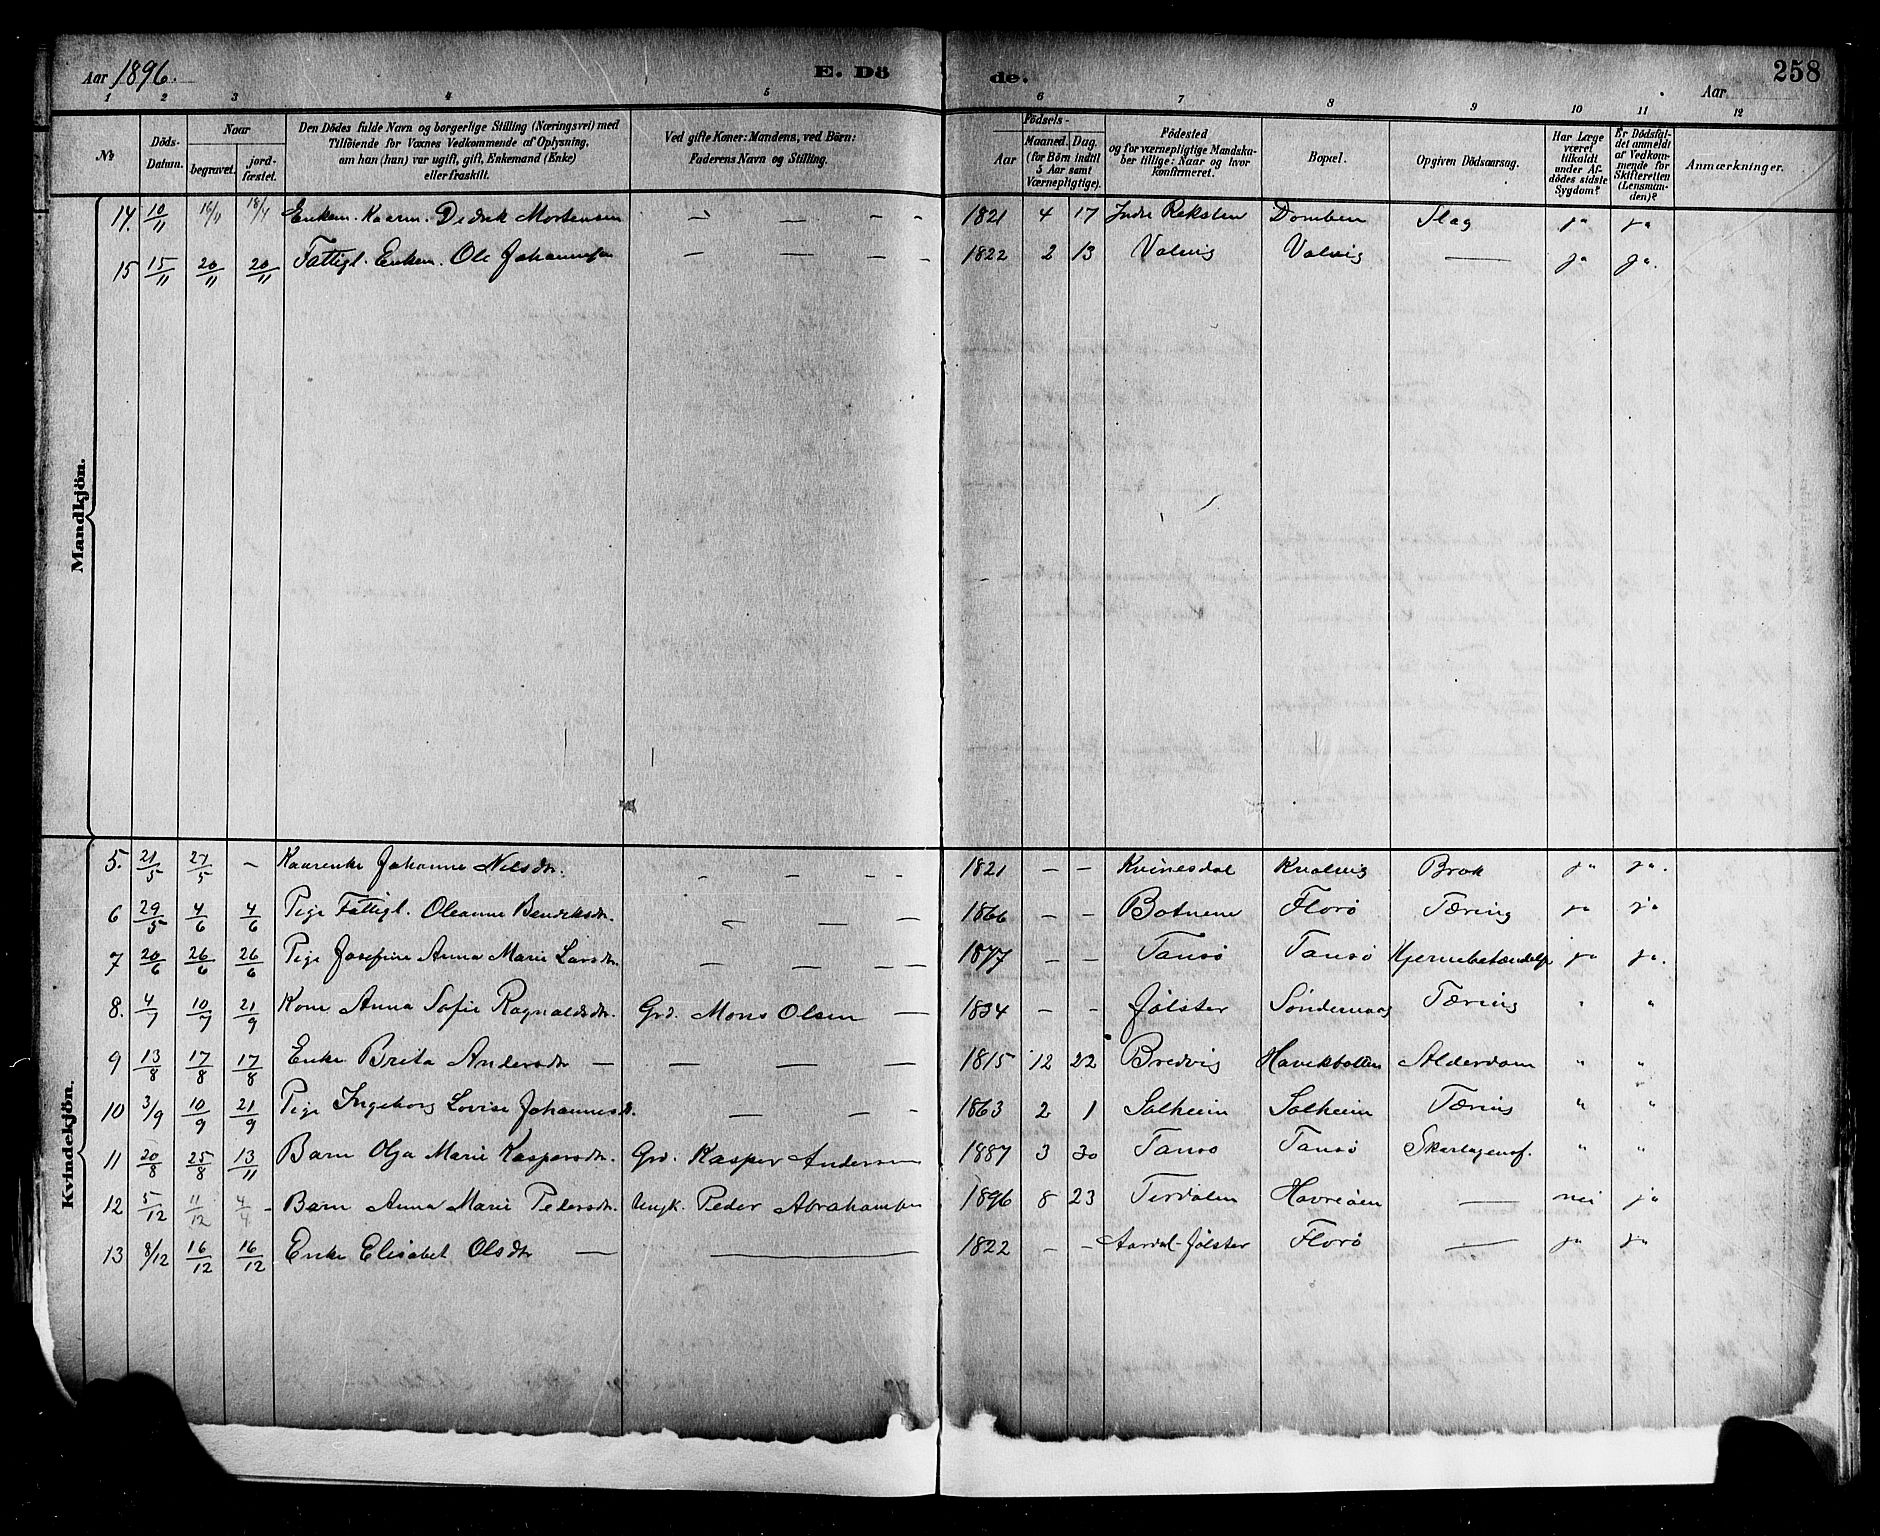 Aar 1896. E. Dö de. Aar 258
1 2 3 4 5 6 7 8 9 10 11 12
№ Döds-Datum. Naar begravet. jord-fæstet. Den Dödes fulde Navn og borgerlige Stilling (Næringsvei) med Tilföiende for Voxnes Vedkommende af Oplysning, om han (hun) var ugift, gift, Enkemand (Enke) eller fraskilt. Ved gifte Koner: Mandens, ved Börn: Faderens Navn og Stilling. Födsels- Aar Maaned. Dag. (for Börn indtil 5 Aar samt Værnepligtige). Födested og for værnepligtige Mandskaber tillige: Naar og hvor konfirmeret. Bopæl. Opgiven Dödsaarsag. Har Læge været tilkaldt under Afdödes sidste Sygdom? Er Dödsfaldet anmeldt af Vedkommende for Skifteretten (Lensmanden)? Anmærkninger.
Mandkjön.
14. 10/11 16/11 18/4 Enkem. Kaarm. Didrik Mortensen — — — — 1821 4 17 Indre Reksten Domben Slag ja ja
15 15/11 20/11 20/11 Fattigl. Enkem. Ole Johannessen — — — — 1822 2 13 Valvig Valvig — ja ja.
Kvindekjön.
5. 21/5 27/5 — Kaarenke Johanne Nilsdtr. — — — — 1821 — — Kvinesdal Kvalvig Brok ja ja.
6 29/5 4/6 4/6 Pige Fattigl. Oleanne Bendiksdtr. — — — 1866 — — Botnene Florö Tæring ja ja
7 20/6 26/6 26/6 Pige Josefine Anna Marie Larsdtr. — — — — 1877 — — Tansö Tansö Hjernebetændelse ja ja.
8. 4/7 10/7 21/9 Kone Anna Sofie Ragnaldsdtr. Grd. Mons Olsen — 1834 — — Jölster Söndernæs Tæring " "
9 13/8 17/8 17/8 Enke Brita Andersdtr — — — — 1815 12 22 Bredvig Havikbotten Alderdom " "
10 3/9 10/9 21/9 Pige Ingeborg Lovise Johannesd. — — — 1863 2 1 Solheim Solheim Tæring " "
11 20/8 25/8 13/11 Barn Olga Marie Kaspersdtr. Grd. Kasper Andersen 1887 3 30 Tansö Tansö Skarlagensf. " "
12 5/12 11/12 4/4 - Barn Anna Marie Pedersdtr. Ungk. Peder Abrahamsen 1896 8 23 Terdalen Havreöen — nei ja
13 8/12 16/12 16/12 Enke Elisabet Olsdtr — — 1822 — — Aardal-Jölster Florö — ja ja